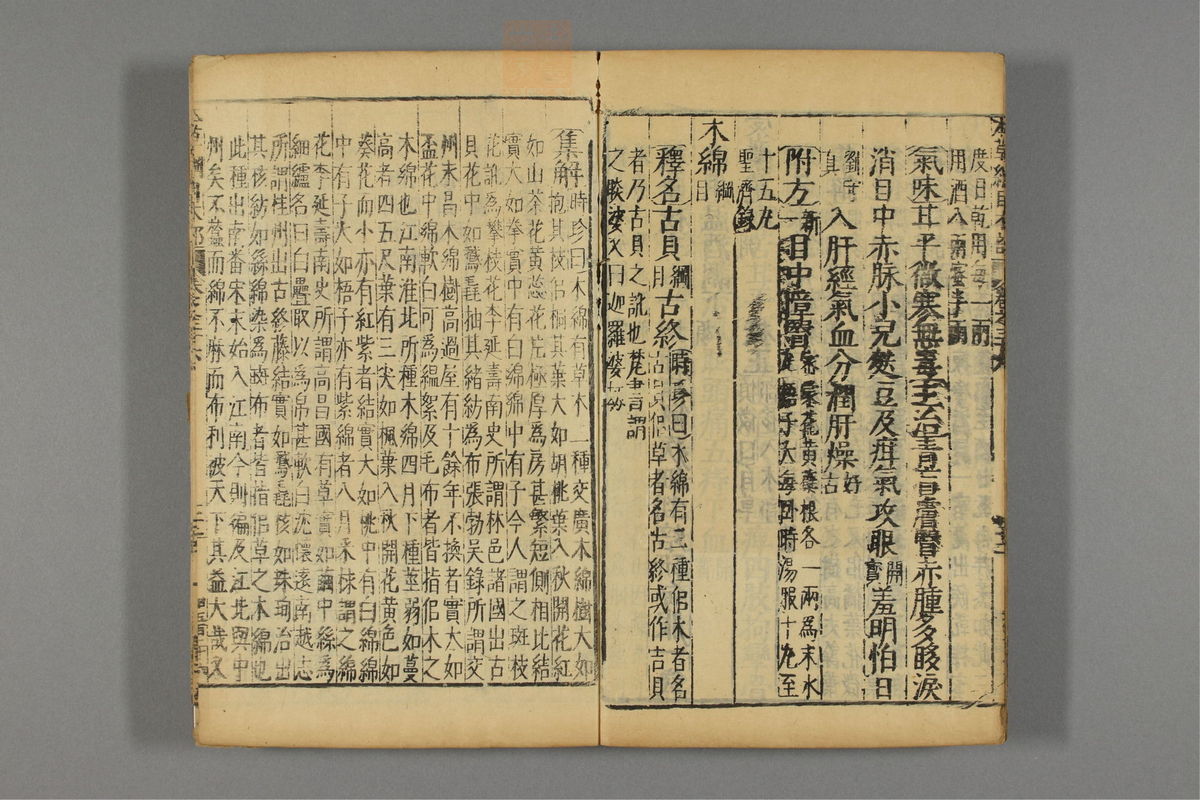 度日乾用每一兩
用酒八兩蜜半兩
氣味甘平微寒無毒主治青盲膚翳赤腫多眵淚
消目中赤脉小兒麩豆及疳氣攻眼開寶羞明怕日
劉守真入肝經氣血分潤肝燥好古
附方新一目中障翳密蒙花黃蘗根各一兩為末水丸梧子大每臥時湯服十丸至
十五丸
聖濟錄
木綿綱目
釋名古貝綱目古終時珍曰木綿有二種佀木者名古貝佀草者名古終或作吉貝
者乃古貝之訛也梵書謂
之睒婆又曰迦羅婆劫
集解時珍曰木綿有草木二種交廣木綿樹大如
抱其枝佀桐其葉大如胡桃葉入秋開花紅
如山茶花黃蕊花片極厚為房甚繁短側相比結
實大如拳實中有白綿綿中有子今人謂之斑枝
花訛為攀枝花李延壽南史所謂林邑諸國出古
貝花中如鵞毳抽其緒紡為布張勃吳錄所謂交
州永昌木綿樹高過屋有十餘年不換者實大如
盃花中綿軟白可為縕絮及毛布者皆指佀木之
木綿也江南淮北所種木綿四月下種莖弱如蔓
高者四五尺葉有三尖如楓葉入秋開花黃色如
葵花而小亦有紅紫者結實大如桃中有白綿綿
中有子大如梧子亦有紫綿者八月采梂謂之綿
花李延壽南史所謂高昌國有草實如繭中絲為
細纑名曰白疊取以為帛甚軟白沈懷遠南越志
所謂桂州出古終藤結實如鵞毳核如珠珣治出
其核紡如絲綿染為斑布者皆指佀草之木綿也
此種出南番宋末始入江南今則徧及江北與中
州矣不蠶而綿不麻而布利被天下其益大哉又